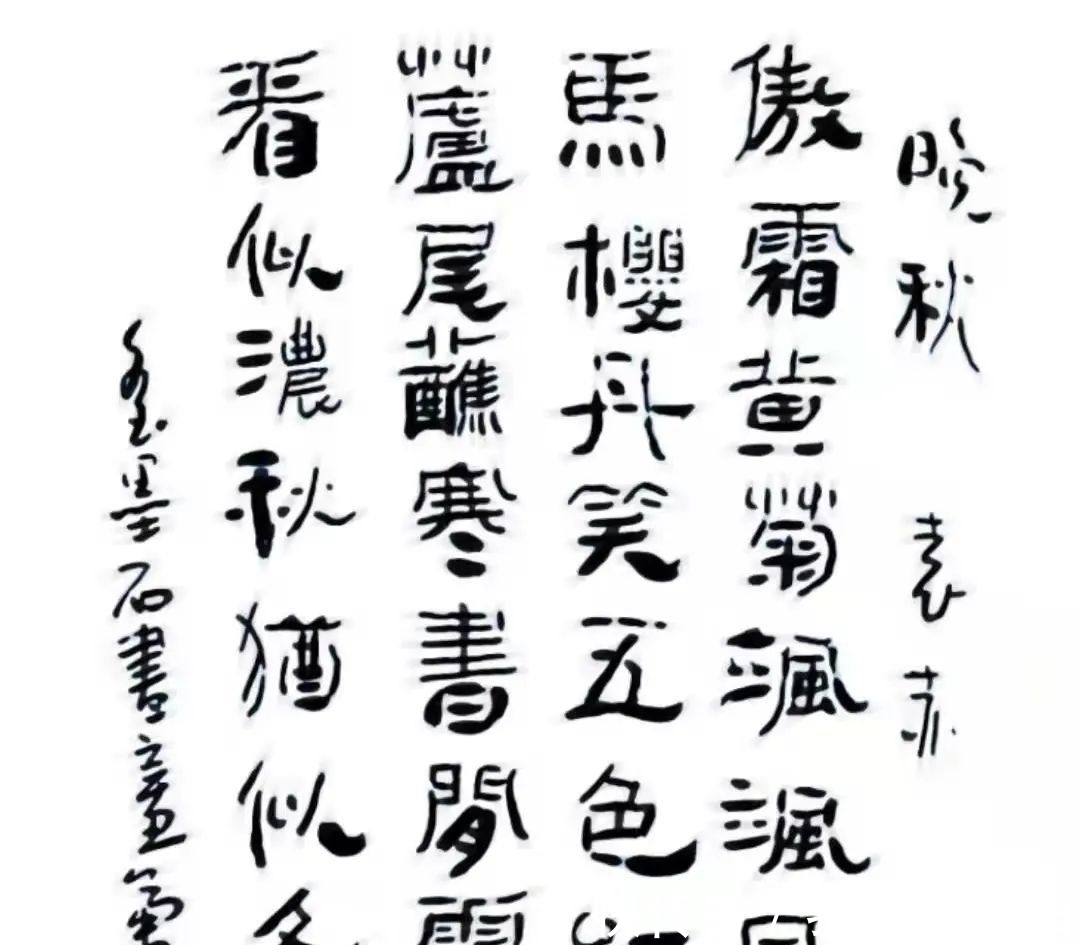 晚秋 袁䒕
傲霜黃菊颯颯
馬櫻丹笑五色
蘆尾蘸寒書閒
看似濃秋猶似冬
墨石書童